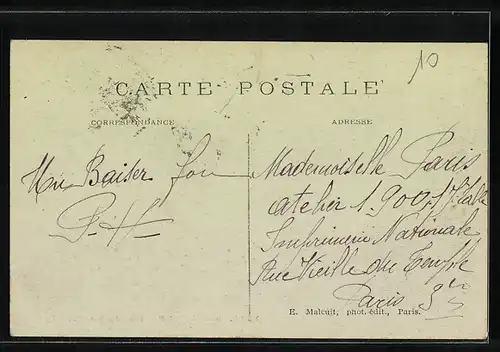 10
CARTE POSTALE
CORRESPONDANCE
ADRESSE
Un Baiser fou
P. H
Mademoiselle Paris
atelier 1.900
Imprimerie Nationale
Rue Vieille du Temple
Paris 3e
E. Malcuit, phot. édit., Paris.